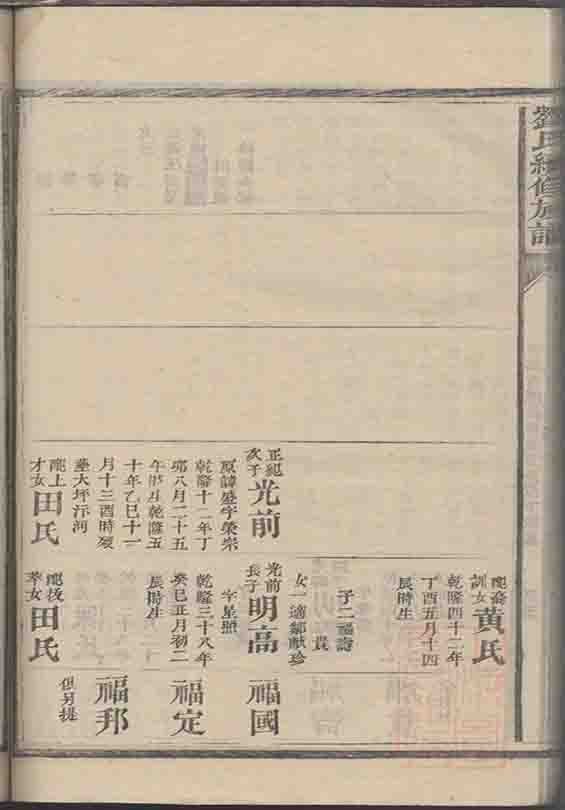 劉氏續修族譜
配裔訓女黃氏
乾隆四十二年
丁酉五月十四
辰時生
子二福壽
貴
女一適鄒獻珍
正紀次子光前
原諱盛字榮宗
乾隆十二年丁
卯八月二十五
午時生乾隆五
十年乙巳十一
月十三酉時歿
塟大坪汙河
配上才女田氏
光前長子明高
字星照
乾隆三十八年
癸巳正月初二
辰時生
配拔萃女田氏
福國
福定
福邦
俱另提